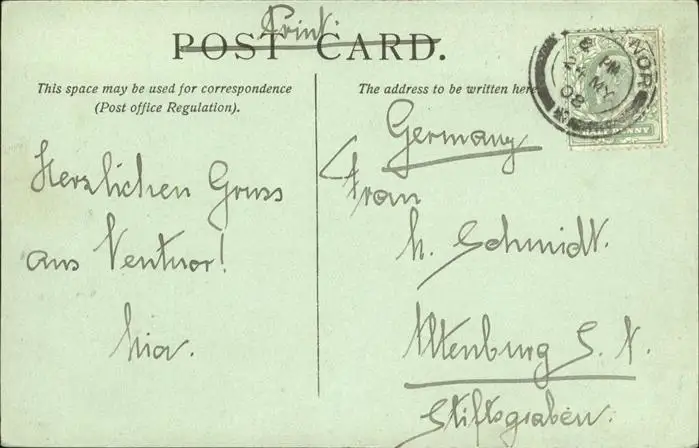 Print.
POST CARD.
This space may be used for correspondence
(Post office Regulation).
The address to be written here
Herzlichen Gruss
aus Ventnor!
Germany
Frau
Schmidt.
Altenburg S. A.
Stiftsgraben.
8 PM
MY
08